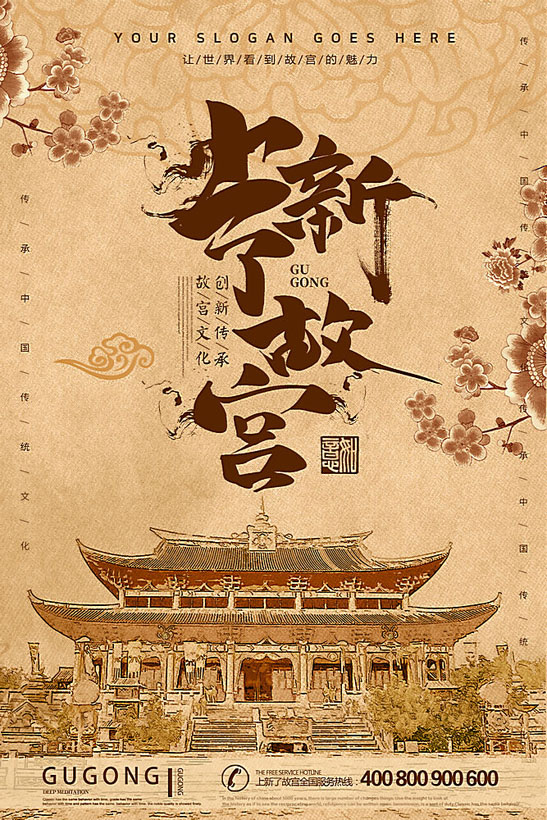 YOUR SLOGAN GOES HERE
让/世/界/看/到/故/宫/的/魅/力
上新
了
GU
GONG
故
宫
创/新/传/承
故/宫/文/化
传/承/中/国/传/统/文/化
传/承/中/国
承/中/国/传/统
GUGONG
GUGONG
DEEP MEDITATION
THE FREE SERVICE HOTLINE
上新了故宫全国服务热线:400 800 900 600